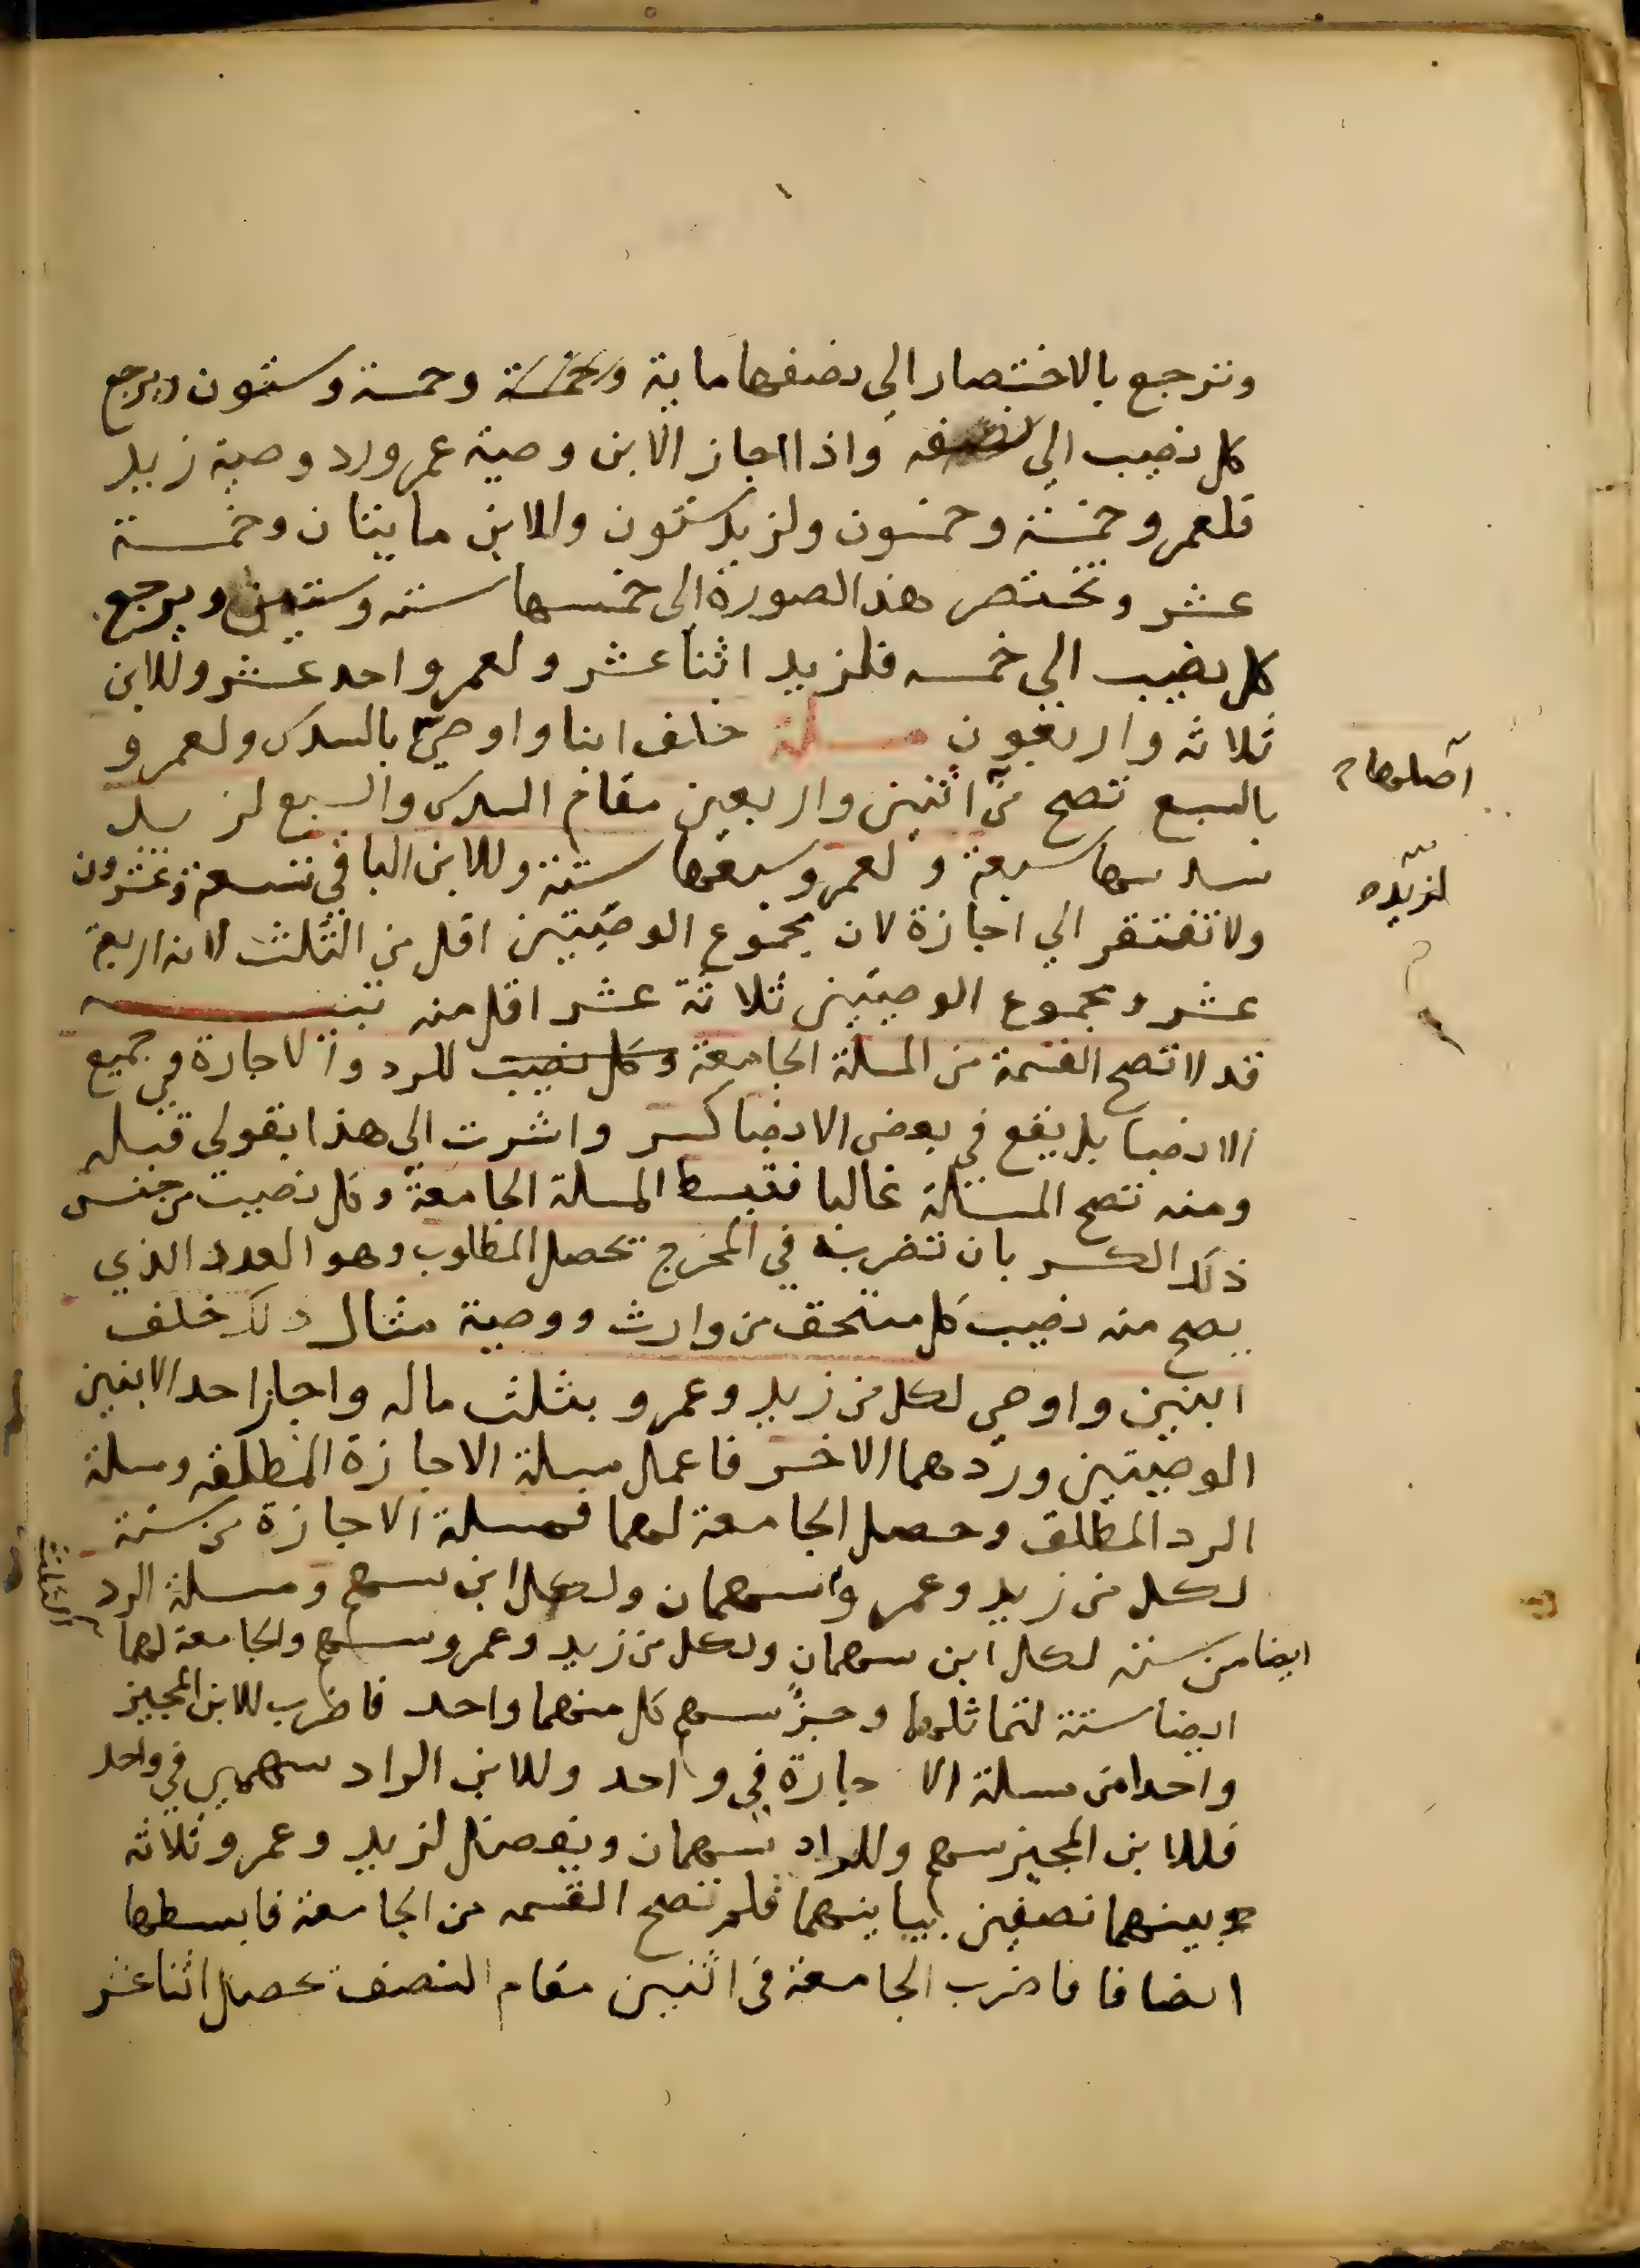 وترجع بالاختصار الى نصفها ماية وخمسة وخمسة وستون ويرجع
كل نصيب الي نصفه واذا اجاز الابن وصية عمرو ورد وصية زيد
فلعمرو خمسة وخمسون ولزيد ستون وللابن مايتان وخمسة
عشر وتختصر هذه الصورة الى خمسها ستة وستين ويرجع
كل نصيب الي خمسه فلزيد اثنا عشر ولعمرو احد عشر وللابن
ثلاثه واربعون مسلة خلف ابنا واوصى بالسدس ولعمرو
بالسبع تصح من اثنين واربعين مقام السدس والسبع لزيد
سدسها سبعة ولعمرو سبعها ستة وللابن الباقي تسعة وعشرون
ولا تفتقر الي اجازة لان مجموع الوصيتين اقل من الثلث لانه اربعة
عشر ومجموع الوصيتين ثلاثة عشر اقل منه تنبيه
قد لا تصح القسمة من المسلة الجامعة وكل نصيب للرد والاجازة في جميع
الانصبا بل يقع في بعض الانصبا كسر واشرت الى هذا بقولي قبله
ومنه تصح المسئلة غالبا فتبسط المسلة الجامعة وكل نصيب من جنس
ذلك الكسر بان تضربه في المخرج تحصل المطلوب وهو العدد الذي
يصح منه نصيب كل مستحق من وارث ووصية مثال ذلك خلف
ابنين واوصى لكل من زيد وعمرو بثلث ماله واجاز احد الابنين
الوصيتين وردهما الاخر فاعمل مسلة الاجازة المطلقه ومسلة
الرد المطلق وحصل الجامعة لهما فمسلة الاجازة من ستة
لكل من زيد وعمرو سهمان ولكل ابن سهم ومسلة الرد
ايضا من ستة لكل ابن سهمان ولكل من زيد وعمرو سهم والجامعة لهما
ايضا ستة لتماثلهما وجزء سهم كل منهما واحد فاضرب للابن المجيز
واحدا من مسلة الاجازة في واحد وللابن الراد سهمين في واحد
فللابن المجيز سهم وللراد سهمان ويفضل لزيد وعمرو ثلاثه
بينهما نصفين يباينهما فلم تصح القسمه من الجامعة فابسطها
انصافا فاضرب الجامعة في اثنين مقام النصف تحصل اثنا عشر
اصلها
لزيد